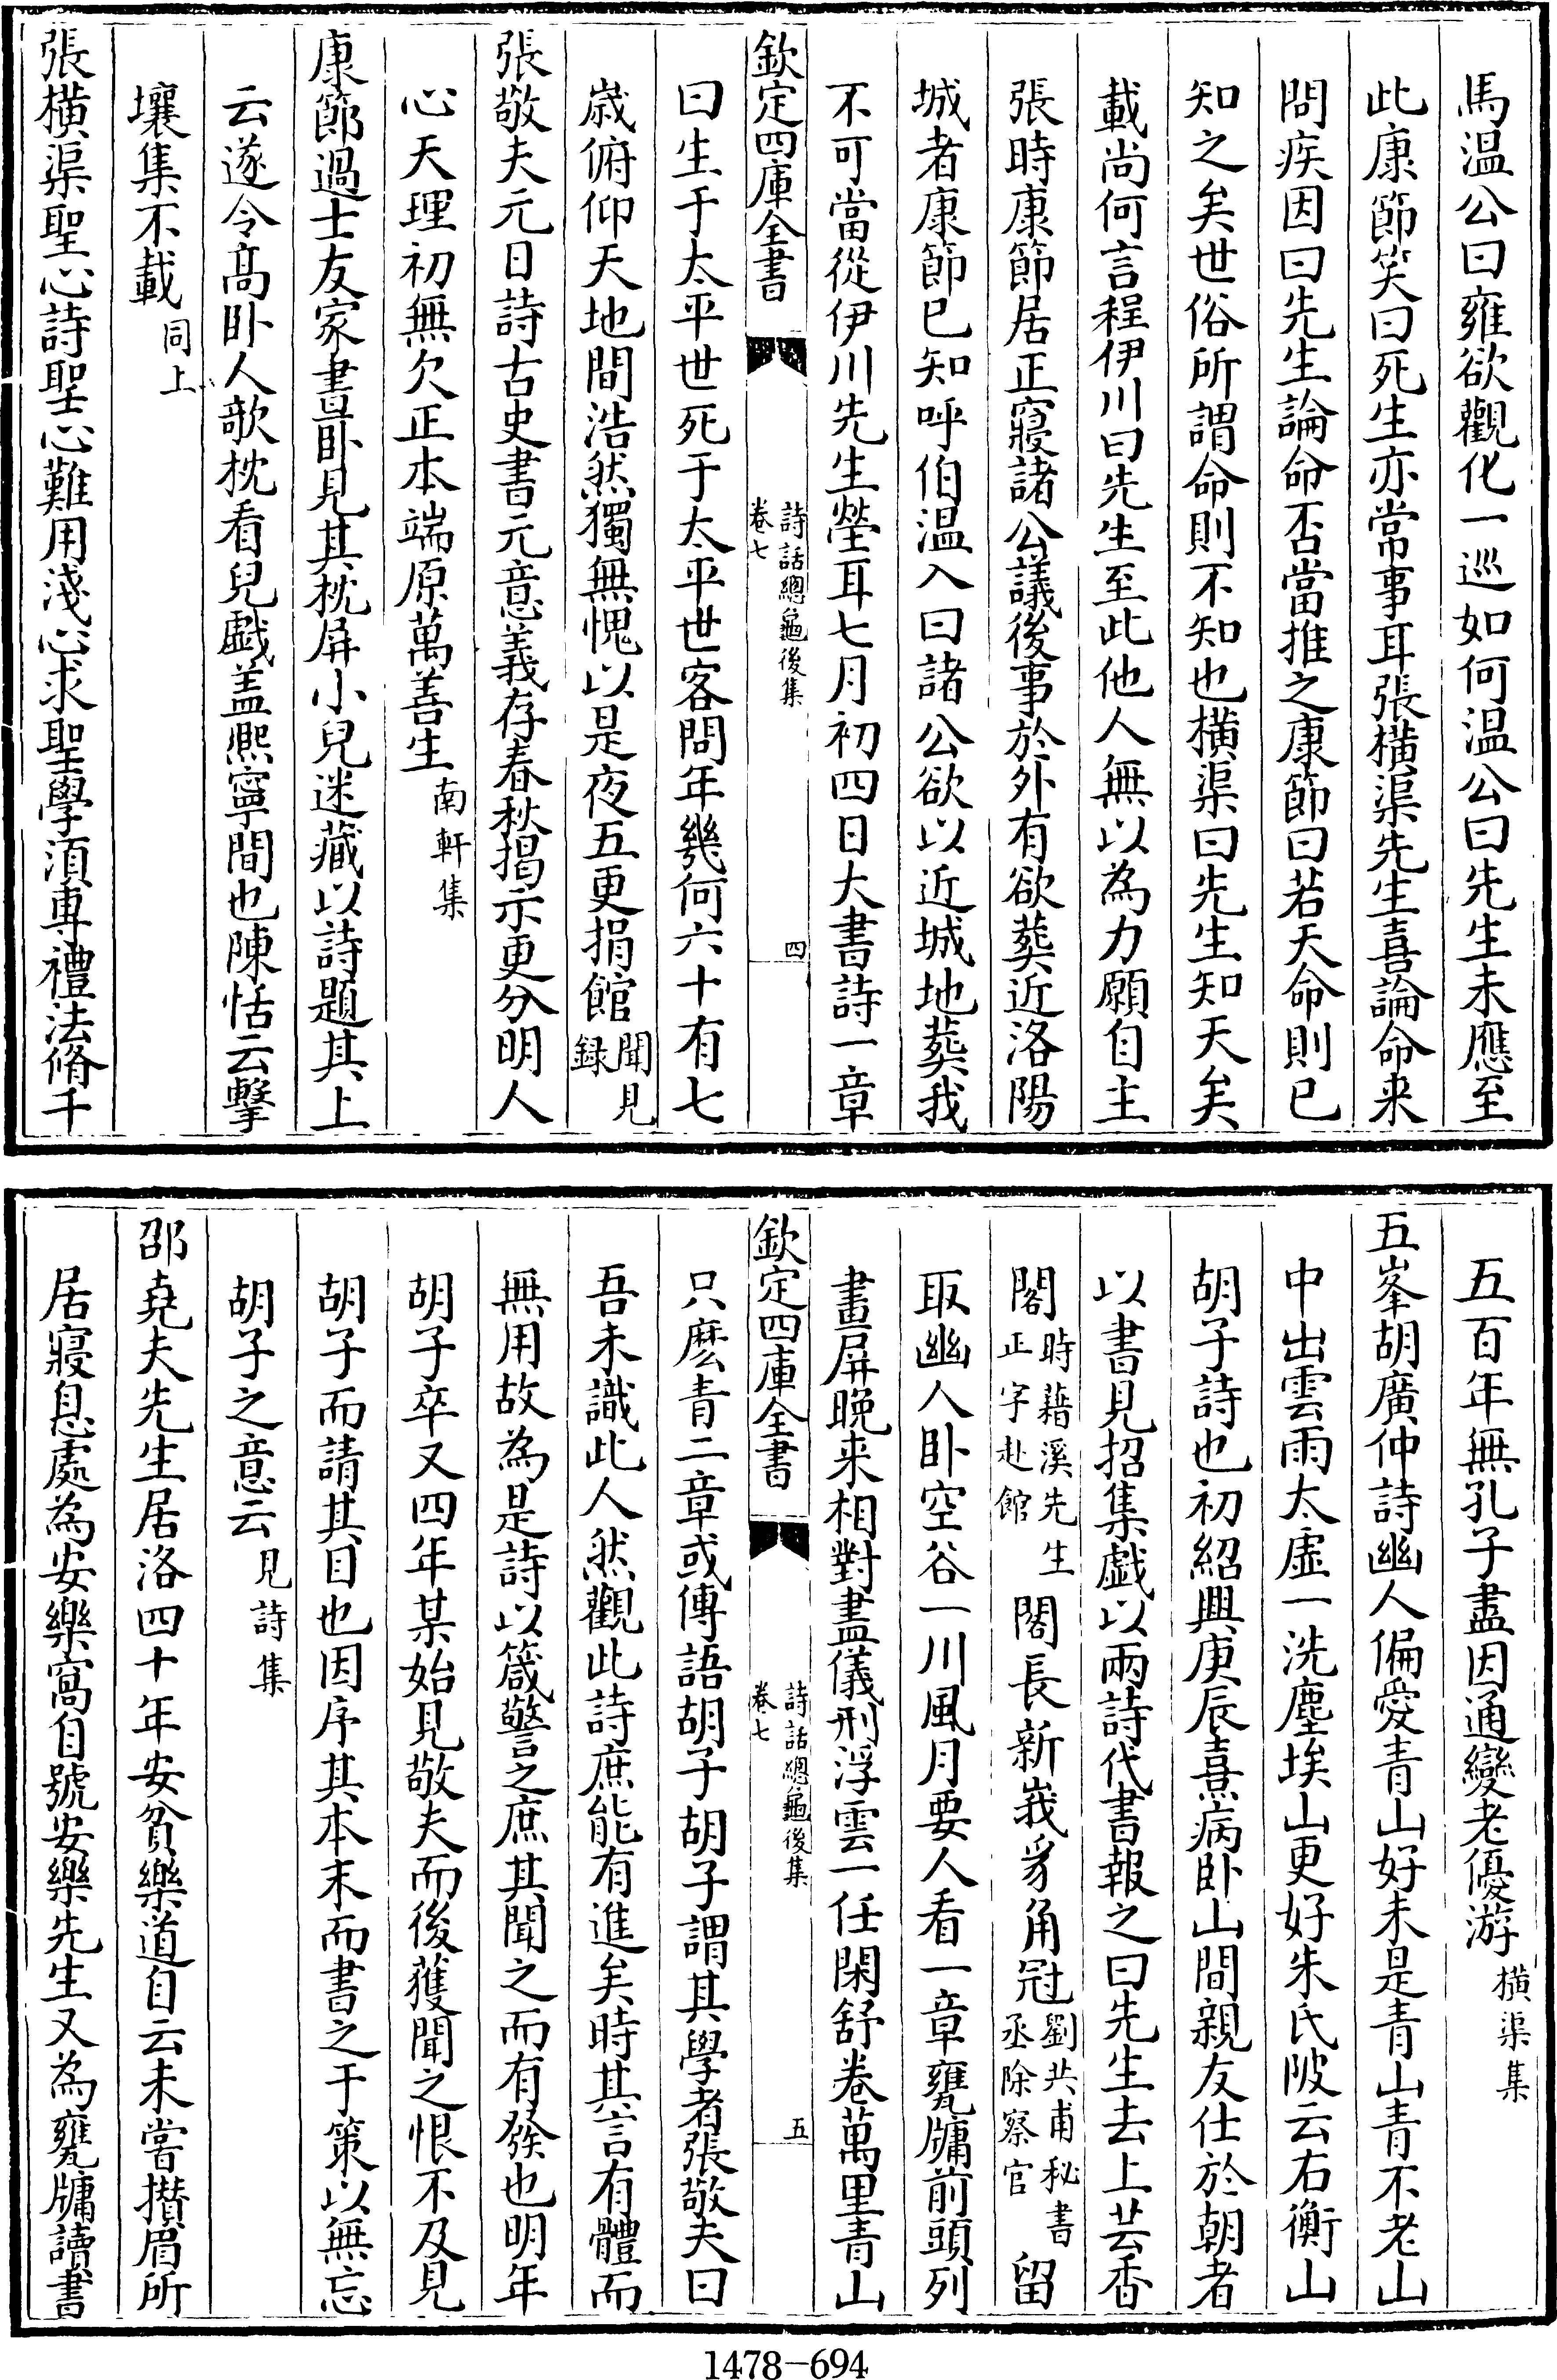 馬温公曰雍欲觀化一巡如何温公曰先生未應至
此康節笑曰死生亦常事耳張橫渠先生喜論命来
問疾因曰先生論命否當推之康節曰若天命則已
知之矣世俗所謂命則不知也橫渠曰先生知天矣
載尚何言程伊川曰先生至此他人無以為力願自主
張時康節居正寢諸公議後事於外有欲葬近洛陽
城者康節已知呼伯温入曰諸公欲以近城地葬我
不可當從伊川先生塋耳七月初四日大書詩一章
欽定四庫全書
詩話總龜後集
卷七
四
曰生于太平世死于太平世客問年幾何六十有七
歳俯仰天地間浩然獨無愧以是夜五更捐館聞見録
張敬夫元日詩古史書元意義存春秋揭示更分明人
心天理初無欠正本端原萬善生南軒集
康節過士友家晝卧見其枕屏小兒迷藏以詩題其上
云遂令髙卧人欹枕看兒戯盖熈寧間也陳恬云擊
壤集不載同上
張橫渠聖心詩聖心難用淺心求聖學湏専禮法脩千
五百年無孔子盡因通變老優游橫渠集
五峯胡廣仲詩幽人偏愛青山好未是青山青不老山
中出雲雨太虛一洗塵埃山更好朱氏陂云右衡山
胡子詩也初紹興庚辰熹病卧山間親友仕於朝者
以書見招集戯以兩詩代書報之曰先生去上芸香
閣時藉溪先生正字赴館閣長新峩豸角冠劉共甫秘書丞除察官留
取幽人卧空谷一川風月要人看一章甕牖前頭列
畫屏晚来相對盡儀刑浮雲一任閑舒卷萬里青山
欽定四庫全書
詩話總龜後集
卷七
五
只麽青二章或傳語胡子胡子謂其學者張敬夫曰
吾未識此人然觀此詩庶能有進矣時其言有體而
無用故為是詩以箴警之庶其聞之而有發也明年
胡子卒又四年某始見敬夫而後獲聞之恨不及見
胡子而請其目也因序其本末而書之于策以無忘
胡子之意云見詩集
邵堯夫先生居洛四十年安貧樂道自云未嘗攅眉所
居寢息處為安樂窩自號安樂先生又為甕牖讀書
1478-694